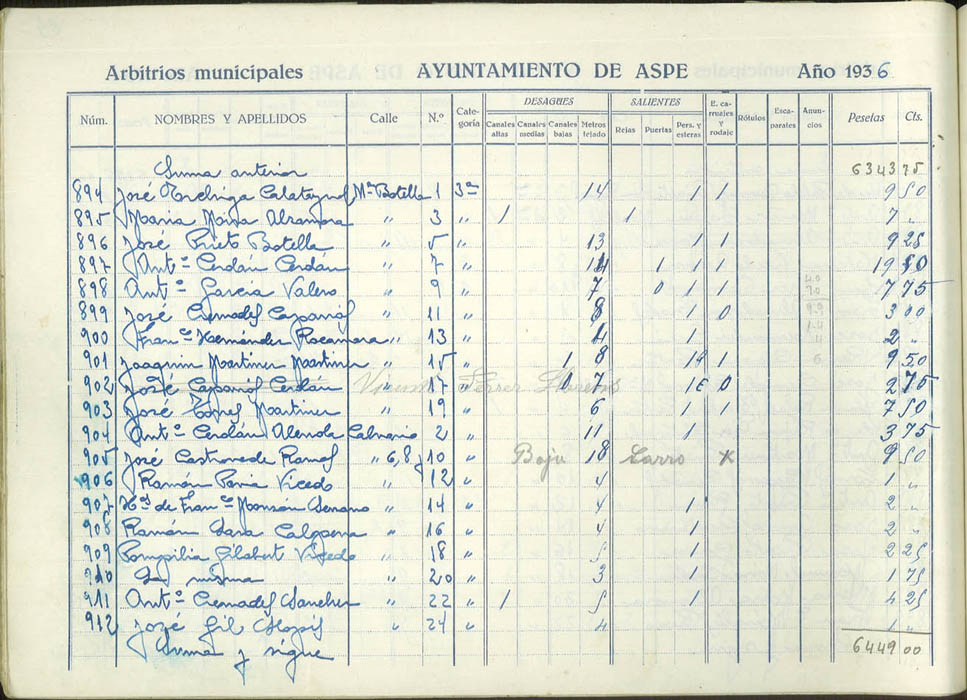 Arbitrios municipales AYUNTAMIENTO DE ASPE Año 1936
Núm. NOMBRES Y APELLIDOS Calle N.º Categoría DESAGUES SALIENTES E. carruajes y rodaje Rótulos Escaparates Anuncios Pesetas Cts.
Canales altas Canales medias Canales bajas Metros tejado Rejas Puertas Pers. y esteras
Suma anterior 6343 75
894 José Calatayud Mª Botella 1 3ª 14 1 1 9 50
895 Maria Mira " 3 " 1 1 7 "
896 José Prieto Botella " 5 " 13 1 1 9 25
897 Antº Cerdán Cerdán " 7 " 1 1 1 19 50
898 Antº García Valero " 9 " 7 0 1 1 7 75
899 José Cremades " 11 " 8 1 0 3 00
900 Franco Hernández Rocamora " 13 " 4 1 2 "
901 Joaquin Martinez Martinez " 15 " 1 8 1 9 50
902 José Cerdán Vicente 17 Ferrer 0 7 0 2 75
903 José López Martinez " 19 " 6 1 1 7 50
904 Antº Cerdán Calvario 2 " 11 1 3 75
905 José " 6,8 y 10 " Bajo 18 9 50
906 Ramón Vicedo " 12 " 4 1 "
907 de Franco Monzón " 14 " 4 1 2 "
908 Ramón " 16 " 4 1 2 "
909 Pompilia Gilabert Vicedo " 18 " 5 1 2 25
910 La misma " 20 " 3 1 1 75
911 Antº Cremades Sanchez " 22 " 1 5 1 4 25
912 José Gil " 24 " 4 1 "
Suma y sigue 6449 00